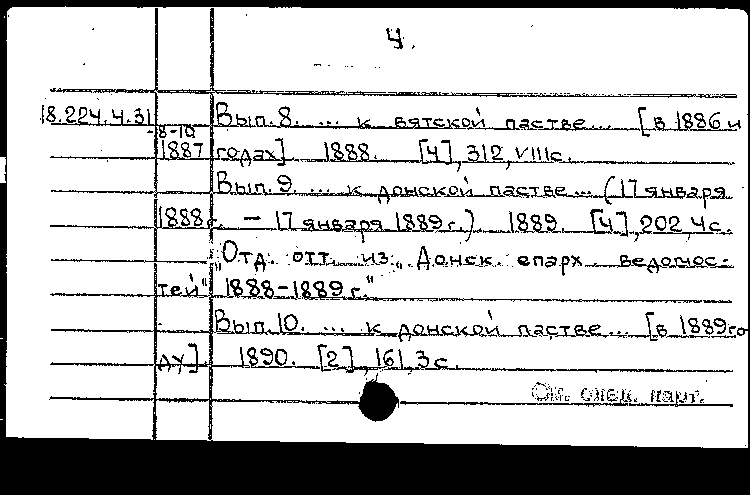 4.
18.224.4.31 Вып. 8. ... к вятской пастве... [в 1886 и
-8-10
1887 годах] 1888. [4], 312, VIII с.
Вып. 9. ... к донской пастве... (17 января
1888 г. – 17 января 1889 г.). 1889. [4], 202, 4 с.
„Отд. отт. из „Донск. епарх. ведомос-
тей" 1888-1889 г."
Вып. 10. ... к донской пастве... [в 1889 го
ду]. 1890. [2], 161, 3 с.
См. след. карт.